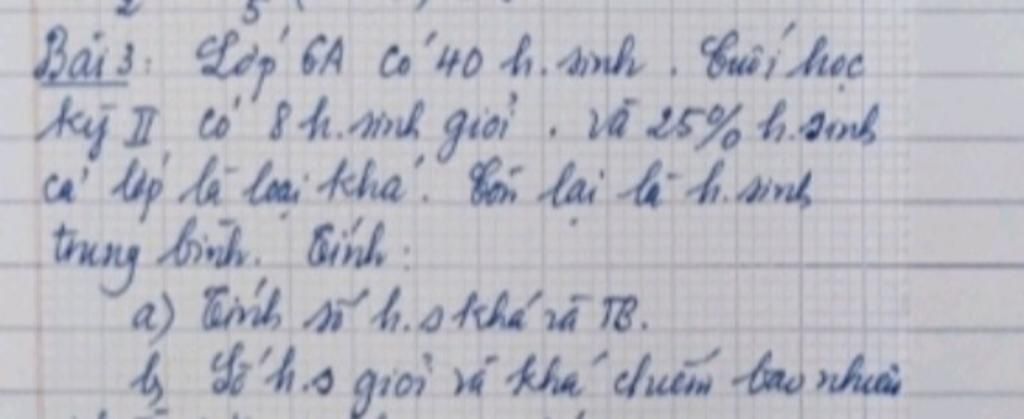 Bài 3: Lớp 6A có 40 h.sinh. Cuối học
kỳ II có 8 h.sinh giỏi. và 25% h.sinh
cả lớp là loại khá. Còn lại là h.sinh
trung bình. Tính:
a) Tính số h.s khá và TB.
b, Số h.s giỏi và khá chiếm bao nhiêu